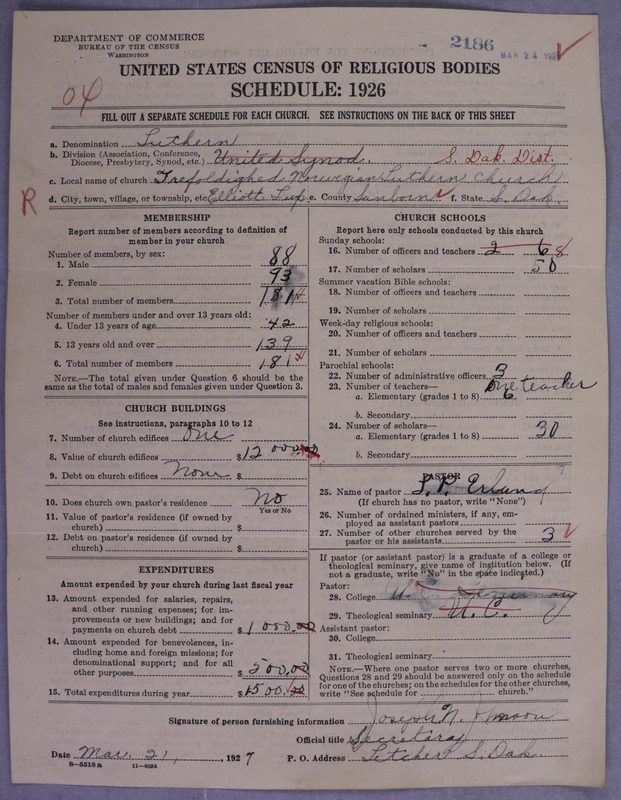 DEPARTMENT OF COMMERCE
BUREAU OF THE CENSUS
WASHINGTON
2186
MAR 24 192
UNITED STATES CENSUS OF RELIGIOUS BODIES
SCHEDULE: 1926
04
FILL OUT A SEPARATE SCHEDULE FOR EACH CHURCH. SEE INSTRUCTIONS ON THE BACK OF THIS SHEET
a. Denomination Luthern
b. Division (Association, Conference, Diocese, Presbytery, Synod, etc.) United Synod. S. Dak. Dist.
c. Local name of church Trefoldighed Norwegian Luthern Church
R
d. City, town, village, or township, etc. Elliott Twp e. County Sanborn f. State S. Dak.
MEMBERSHIP
Report number of members according to definition of
member in your church
Number of members, by sex:
1. Male 88
2. Female 93
3. Total number of members 181
Number of members under and over 13 years old:
4. Under 13 years of age 42
5. 13 years old and over 139
6. Total number of members 181
NOTE.—The total given under Question 6 should be the
same as the total of males and females given under Question 3.
CHURCH BUILDINGS
See instructions, paragraphs 10 to 12
7. Number of church edifices one
8. Value of church edifices $12 000.00
9. Debt on church edifices None $
10. Does church own pastor's residence No
Yes or No
11. Value of pastor's residence (if owned by
church) $
12. Debt on pastor's residence (if owned by
church) $
EXPENDITURES
Amount expended by your church during last fiscal year
13. Amount expended for salaries, repairs,
and other running expenses; for im-
provements or new buildings; and for
payments on church debt $1 000.00
14. Amount expended for benevolences, in-
cluding home and foreign missions; for
denominational support; and for all
other purposes 500.00
15. Total expenditures during year $1500.00
CHURCH SCHOOLS
Report here only schools conducted by this church
Sunday schools:
16. Number of officers and teachers 2 6 8
17. Number of scholars 50
Summer vacation Bible schools:
18. Number of officers and teachers
19. Number of scholars
Week-day religious schools:
20. Number of officers and teachers
21. Number of scholars
Parochial schools:
22. Number of administrative officers 3
23. Number of teachers— one teacher
a. Elementary (grades 1 to 8) 6
b. Secondary
24. Number of scholars—
a. Elementary (grades 1 to 8) 30
b. Secondary
PASTOR
25. Name of pastor
(If church has no pastor, write "None")
26. Number of ordained ministers, if any, em-
ployed as assistant pastors
27. Number of other churches served by the
pastor or his assistants 3
If pastor (or assistant pastor) is a graduate of a college or
theological seminary, give name of institution below. (If
not a graduate, write "No" in the space indicated.)
Pastor:
28. College
29. Theological seminary U. C.
Assistant pastor:
30. College
31. Theological seminary
NOTE.—Where one pastor serves two or more churches,
Questions 28 and 29 should be answered only on the schedule
for one of the churches; on the schedules for the other churches,
write "See schedule for church."
Signature of person furnishing information Joseph N.
Official title Secretary
Date Mar. 21, 1927 P. O. Address Letcher S. Dak.
8—5518 a 11—9054